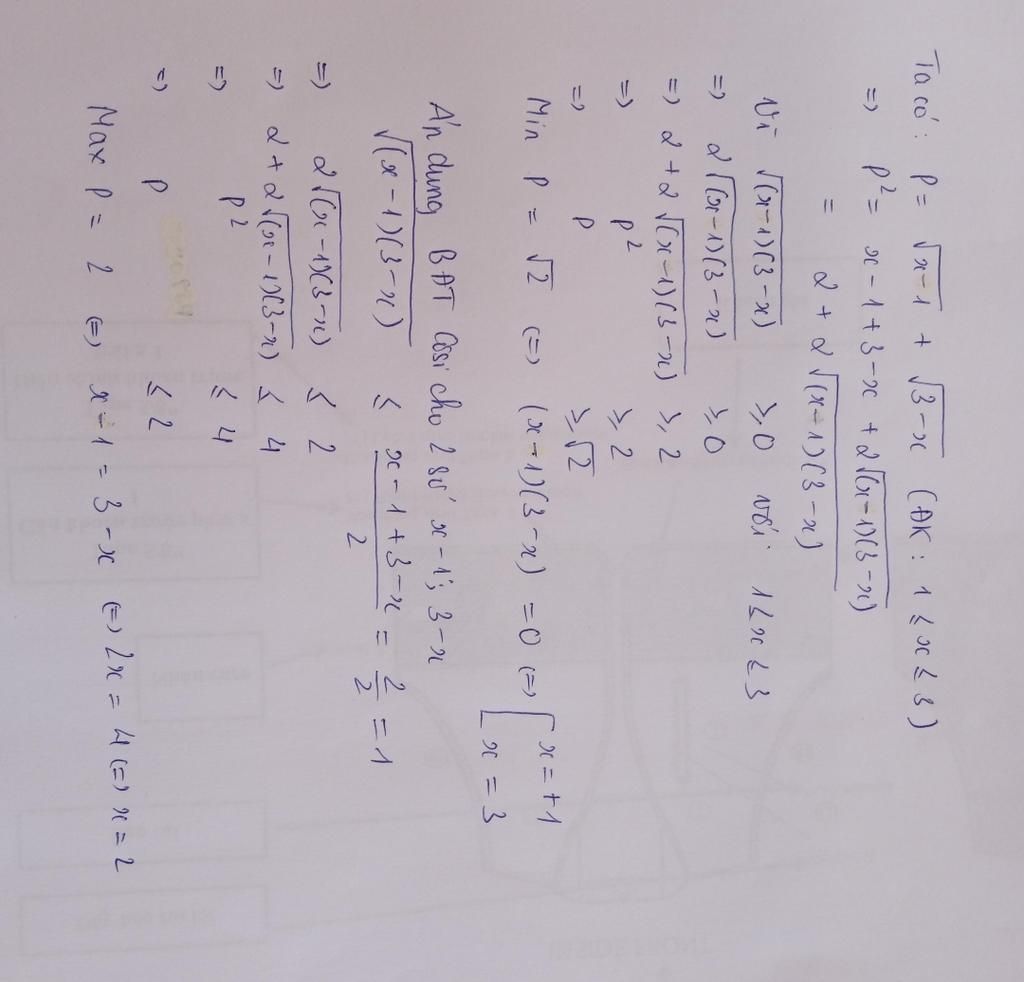 Ta có: P = √(x-1) + √(3-x) (ĐK: 1 ≤ x ≤ 3)
=> P² = x-1+3-x + 2√((x-1)(3-x))
= 2 + 2√((x-1)(3-x))
Vì √((x-1)(3-x)) ≥ 0 với 1 ≤ x ≤ 3
=> 2√((x-1)(3-x)) ≥ 0
=> 2 + 2√((x-1)(3-x)) ≥ 2
=> P² ≥ 2
=> P ≥ √2
Min P = √2 <=> (x-1)(3-x) = 0 <=> [ x = +1
[ x = 3
Án dung BĐT Côsi cho 2 số x-1; 3-x
√((x-1)(3-x)) ≤ (x-1+3-x)/2 = 2/2 = 1
=> 2√((x-1)(3-x)) ≤ 2
=> 2 + 2√((x-1)(3-x)) ≤ 4
=> P² ≤ 4
=> P ≤ 2
Max P = 2 <=> x-1 = 3-x <=> 2x = 4 <=> x = 2